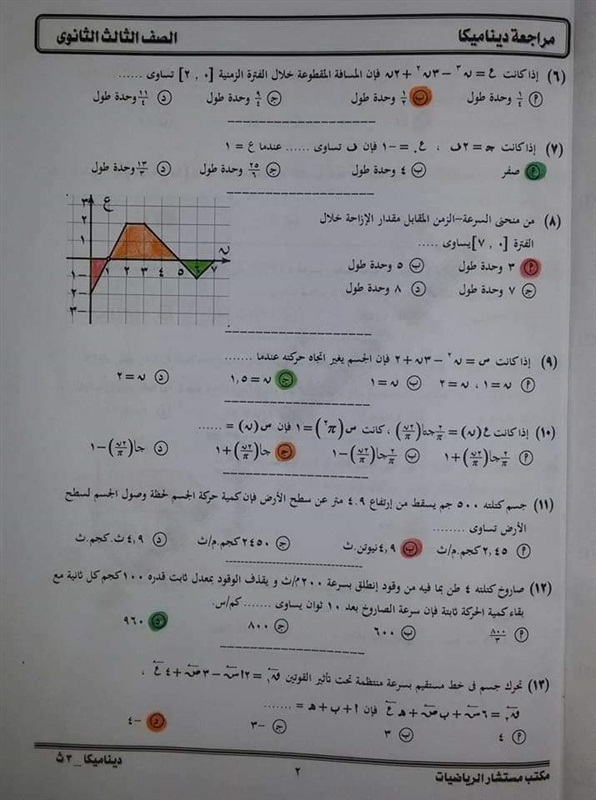 مراجعة ديناميكا
الصف الثالث الثانوى
(٦) إذا كانت ع = ن٣ − ٣ن٢ + ٢ن فإن المسافة المقطوعة خلال الفترة الزمنية [٠ , ٢] تساوى ......
أ ١/٤ وحدة طول ب ١/٢ وحدة طول ج ٩/٤ وحدة طول د ١١/٤ وحدة طول
(٧) إذا كانت جـ = ٢ف ، ع. = −١ فإن ف تساوى ...... عندما ع = ١
أ صفر ب ٤ وحدة طول ج ٢٥/٩ وحدة طول د ١٣/٣ وحدة طول
(٨) من منحنى السرعة-الزمن المقابل مقدار الإزاحة خلال
الفترة [٠ , ٧] يساوى .....
أ ٣ وحدة طول ب ٥ وحدة طول
ج ٧ وحدة طول د ٨ وحدة طول
ع
٣
٢
١
١ ٢ ٣ ٤ ٥ ٦ ٧ ن
١−
٢−
٣−
(٩) إذا كانت س = ن٢ − ٣ن + ٢ فإن الجسم يغير اتجاه حركته عندما ........
أ ن = ١ ، ن = ٢ ب ن = ١ ج ن = ١,٥ د ن = ٢
(١٠) إذا كانت ع(ن) = ٢/π جتا(٢ن/π) ، كانت س(π٢) = ١ فإن س(ن) = ......
أ ٢/π جا(٢ن/π) + ١ ب ٢/π جا(٢ن/π) − ١ ج جا(٢ن/π) + ١ د جا(٢ن/π) − ١
(١١) جسم كتلته ٥٠٠ جم يسقط من إرتفاع ٤.٩ متر عن سطح الأرض فإن كمية حركة الجسم لحظة وصول الجسم لسطح
الأرض تساوى ........
أ ٢,٤٥ كجم.م/ث ب ٤,٩ نيوتن.ث ج ٢٤٥٠ كجم.م/ث د ٤,٩ ث.كجم.ث
(١٢) صاروخ كتلته ٤ طن بما فيه من وقود إنطلق بسرعة ٢٠٠ م/ث و يقذف الوقود بمعدل ثابت قدره ١٠٠ كجم كل ثانية مع
بقاء كمية الحركة ثابتة فإن سرعة الصاروخ بعد ١٠ ثوان يساوى ........ كم/س.
أ ٨٠٠/٣ ب ٦٠٠ ج ٨٠٠ د ٩٦٠
(١٣) تحرك جسم فى خط مستقيم بسرعة منتظمة تحت تأثير القوتين ق١ = ٢أ س − ٣ ص + ٤ ع ،
ق٢ = ٦ س + ب ص + هـ ع فإن أ + ب + هـ = ........
أ ٤ ب ٣ ج −٣ د −٤
مكتب مستشار الرياضيات
٢
ديناميكا _ ٣ث